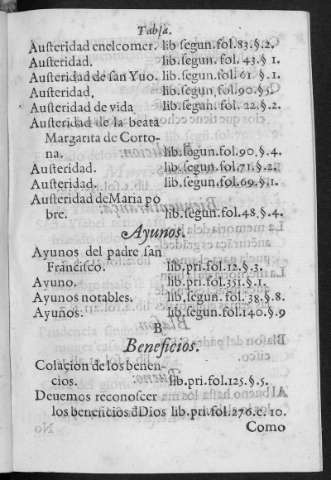 Tabla.
Austeridad enel comer. lib segun. fol. 83. §. 2.
Austeridad. lib. segun. fol. 43. § 1.
Austeridad de san Yuo. lib. segun. fol. 61. §. 1.
Austeridad. lib. segun. fol. 90. §. 5.
Austeridad de vida lib. segun. fol. 22. §. 2.
Austeridad de la beata
Margarita de Corto-
na. lib. segun. fol. 90. §. 4.
Austeridad. lib. segun. fol. 71. §. 2.
Austeridad. lib. segun. fol. 69. §. 1.
Austeridad de Maria po
bre. lib. segun. fol. 48. §. 4.
Ayunos.
Ayunos del padre san
Francisco. lib. pri. fol. 12. §. 3.
Ayuno. lib. pri. fol. 351. §. 1.
Ayunos notables. lib. segun. fol. 38. §. 8.
Ayunos. lib. segun. fol. 140. §. 9
B
Beneficios.
Colacion de los benen-
cios. lib. pri. fol. 125. §. 5.
Deuemos reconoscer
los beneficios dDios lib. pri. fol. 276. c. 10.
Como